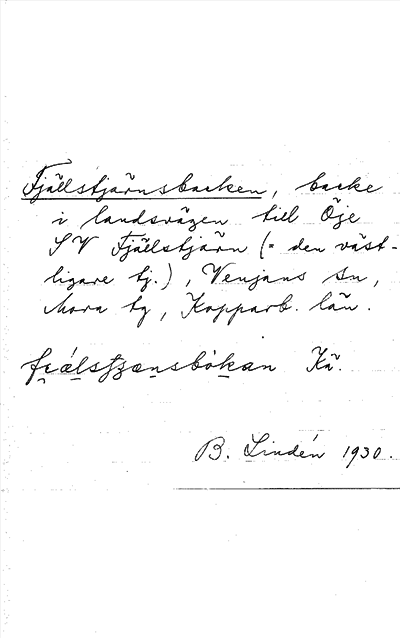 Fjällstjärnsbacken, backe
i landsvägen till Öje
SV Fjällstjärn (= den väst-
ligare tj.), Venjans sn,
Mora tg, Kopparb. län.
Kä.
B. Lindén 1930.